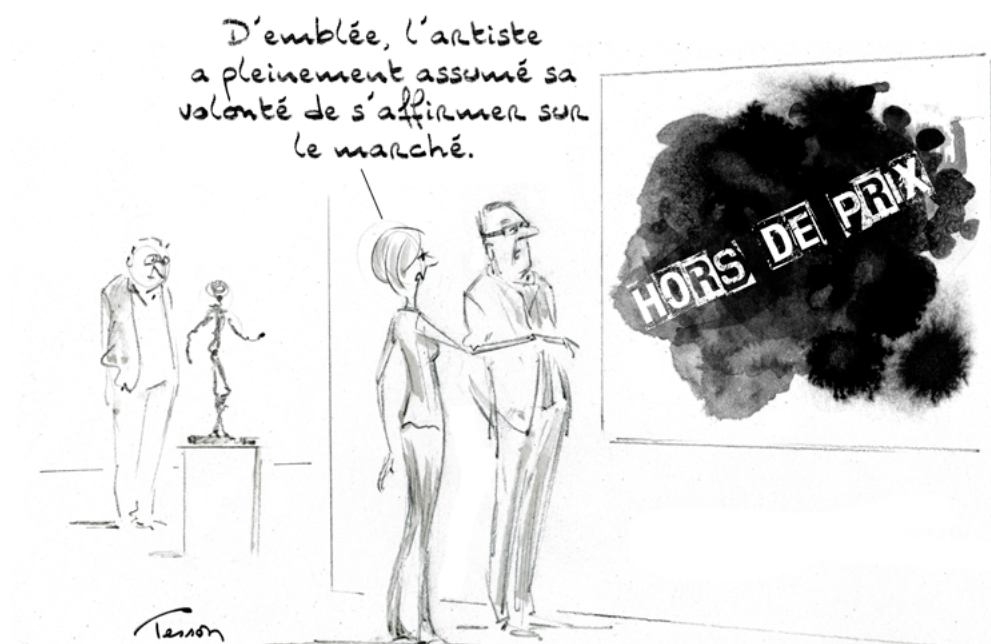 D'emblée, l'artiste
a pleinement assumé sa
volonté de s'affirmer sur
le marché.
HORS DE PRIX
Tesson